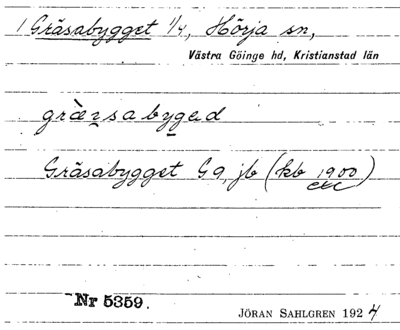 1 Gräsabygget 1/4, Hörja sn,
Västra Göinge hd, Kristianstad län
Gräsabygget G 9, jb (kb 1900 etc)
Nr 5359.
JÖRAN SAHLGREN 1924